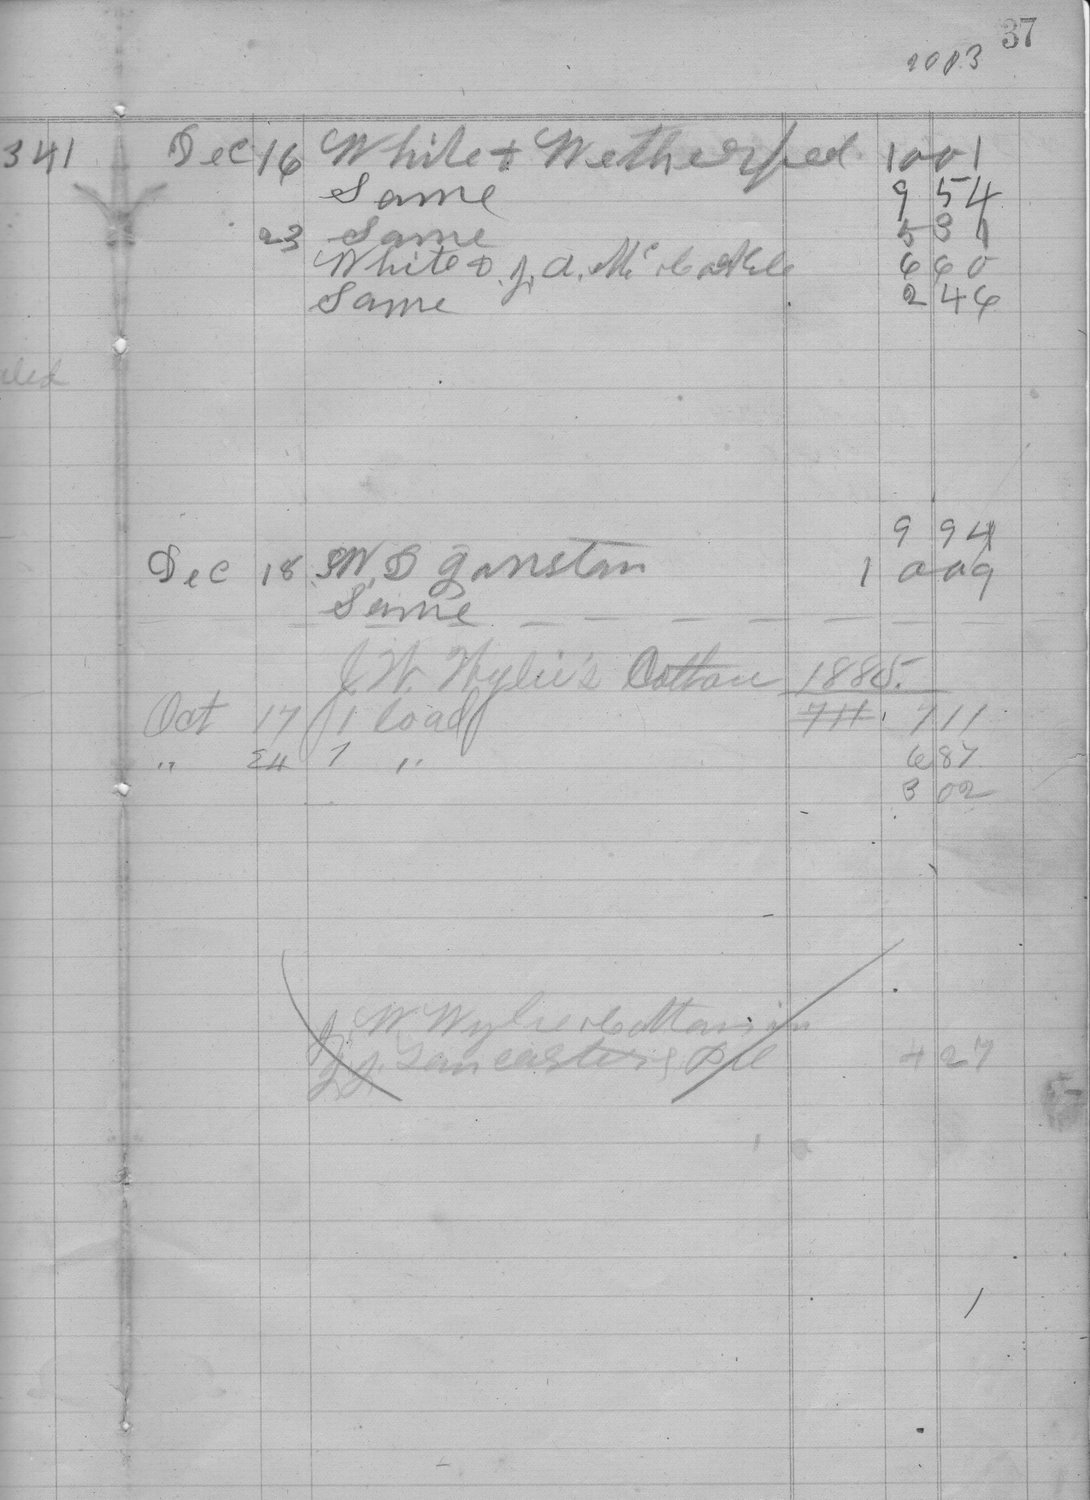 37
1013
341 Dec 16 White & Wetherford 1001
Same 954
23 Same 531
White & J. A. Mc 660
Same 246
994
Dec 18 W. D 1 009
Same
J. W. Wylie's Cotton 1885.
Oct 17 1 load 711 711
" 24 1 " 687
302
J. W Wylie Cotton in
J. J. Lancasters Bill 427